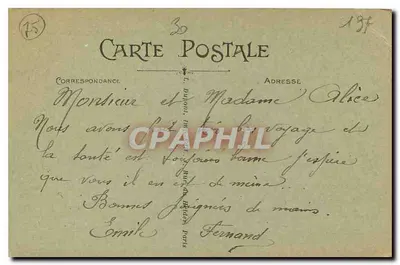 75
30
197
CARTE POSTALE
CORRESPONDANCE
ADRESSE
Monsieur et Madame Alice
Nous avons voyage et
la santé est toujours bonne j'espère
que vous il en est de même.
Bonnes poignés de mains.
Emile Fernand
CPAPHIL
Paris